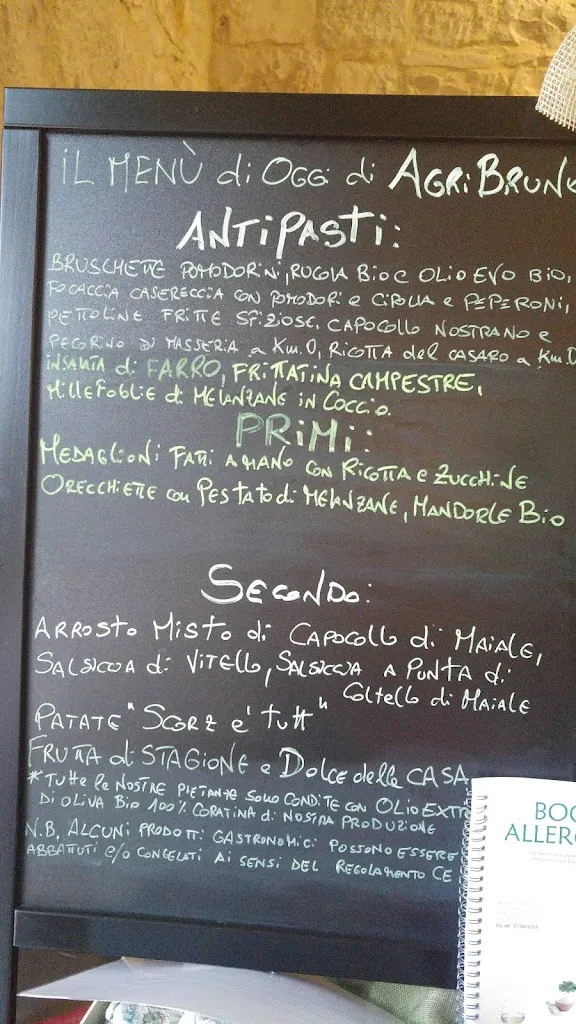 iL MENÙ di OGGi di AGRiBRUN
ANTiPASTi:
BRUSCHETTE POMODORiNi, RUCOLA BiO E OLiO EVO BiO,
FOCACCiA CASERECCiA CON POMODORi e CiPOLLA e PEPERONi,
PETTOLINE FRiTTE SFiZiOSE, CAPOCOLLO NOSTRANO e
PECORiNO Di MASSERiA a Km.0, RiCOTTA del CASARO a Km.0
iNSALATA di FARRO, FRiTTATiNA CAMPESTRE,
MiLLEFOGLiE di MELANZANE iN COCCiO.
PRiMi:
MEDAGLiONi FATTi A MANO CON RiCOTTA e ZUCCHiNE
ORECCHiETTE con PESTATO di MELANZANE, MANDORLE BiO
SECONDO:
ARROSTO MiSTO di CAPOCOLLO di MAiALE,
SALSiCCiA di ViTELLO, SALSiCCiA A PUNTA di
COLTELLO di MAiALE
PATATE "SCORZ e' TUTT"
FRUTTA di STAGiONE e DOLCE delle CASA
*TUTTe le NOSTRE PiETANZE SONO CONDiTE CON OLiO EXTR
Di OLiVA BiO 100% CORATiNA di NOSTRA PRODUZiONE
N.B. ALCUNi PRODOTTi GASTRONOMiCi POSSONO ESSERE
ABBATTUTi e/o CONGELATi Ai SENSi DEL REGOLAMENTO CE
BOO
ALLERG